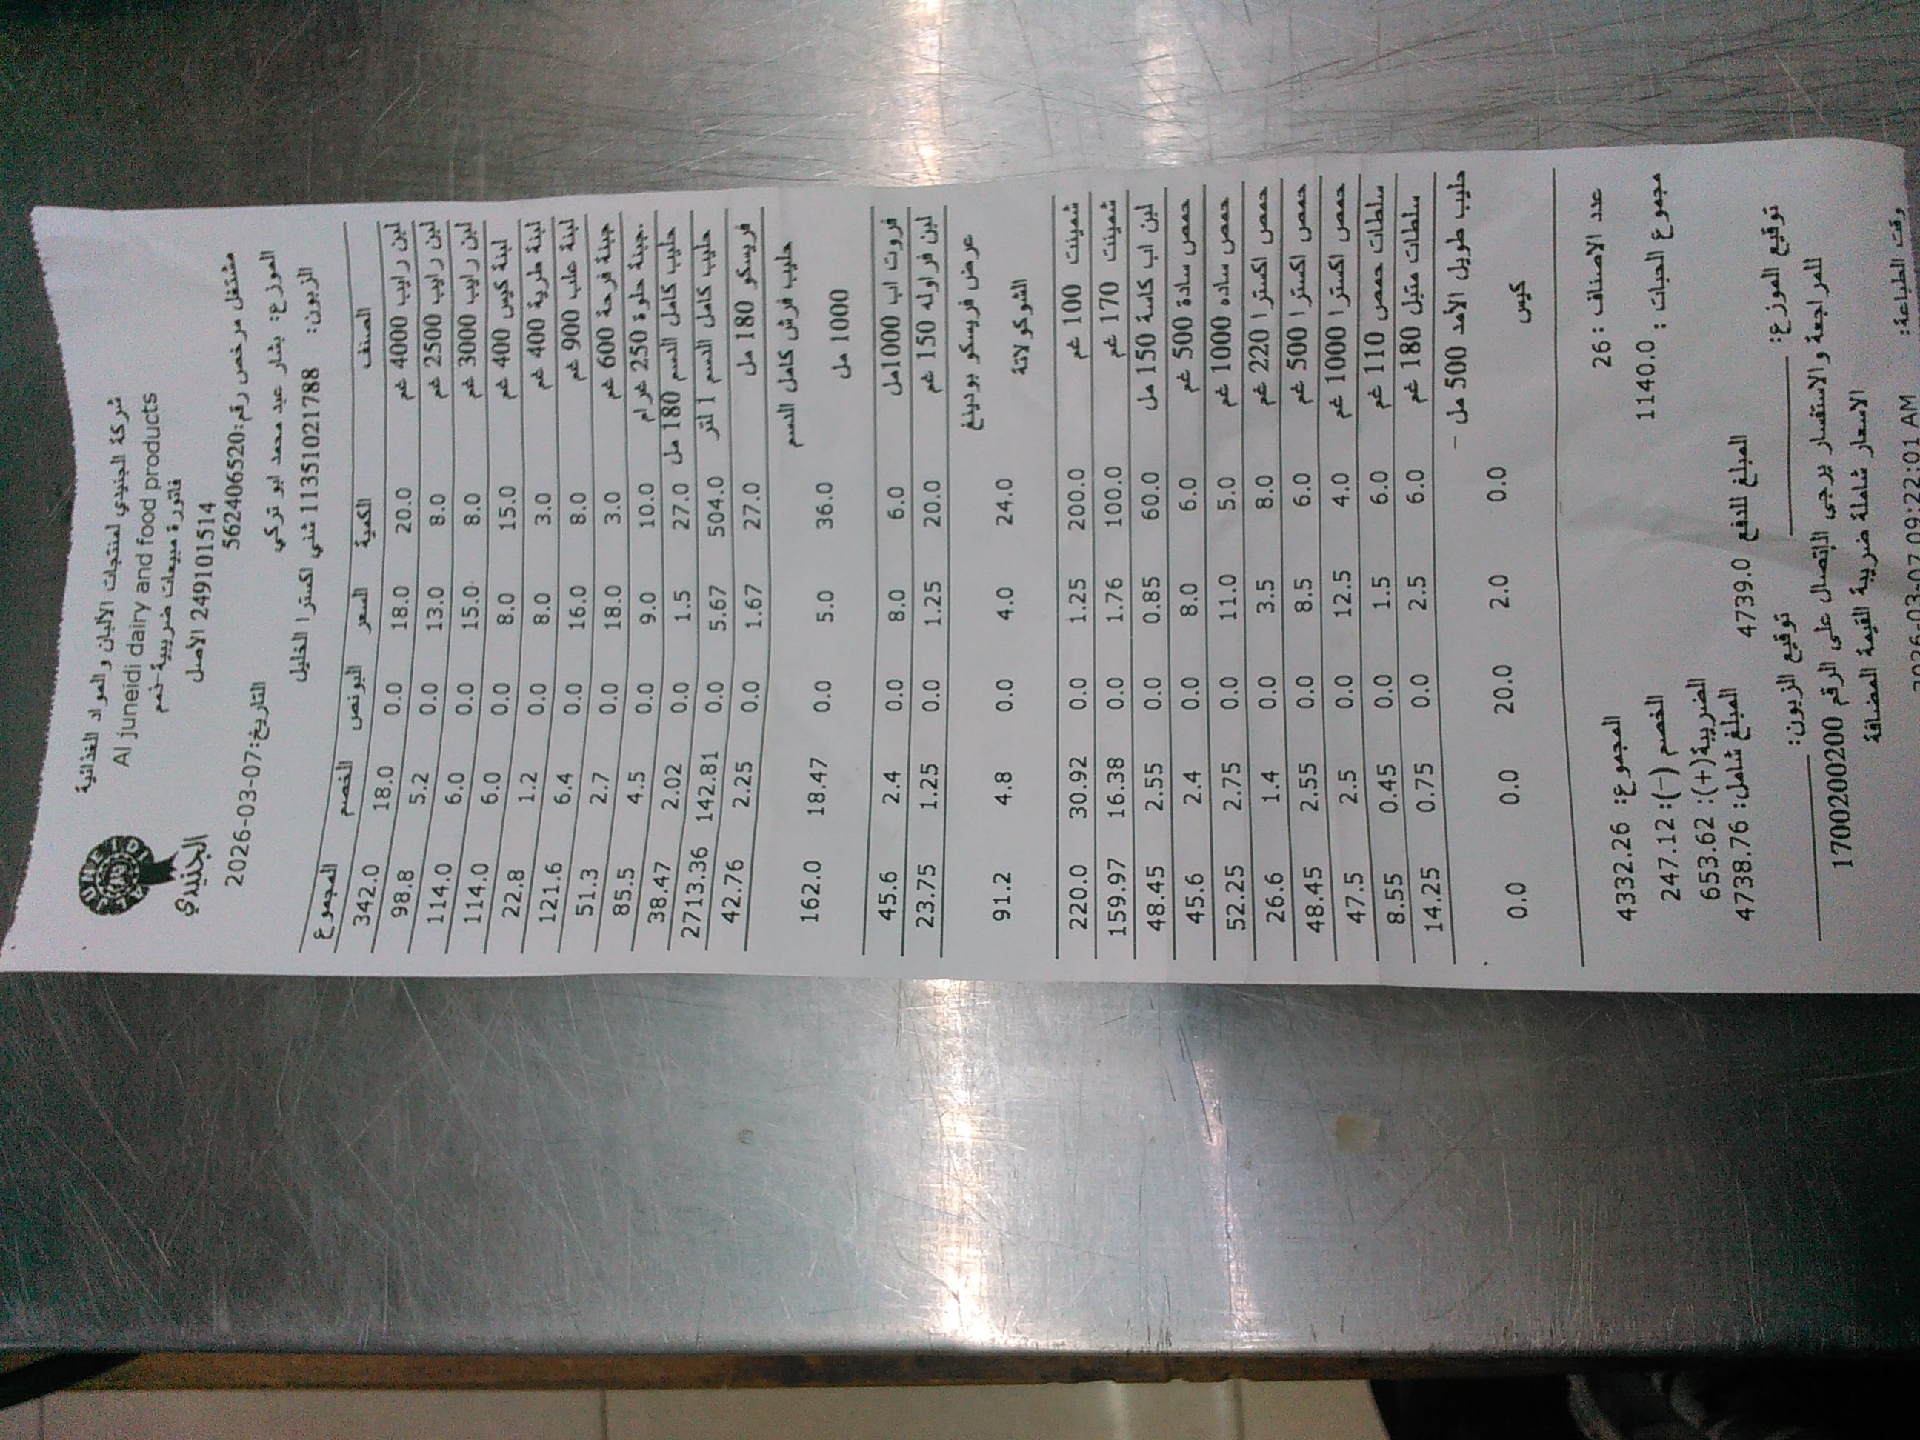 شركة الجنيدي لمنتجات الألبان والمواد الغذائية
Al juneidi dairy and food products
فاتورة مبيعات ضريبية-ذمم
2491101514 الاصل
الجنيدي
مشتغل مرخص رقم:562406520
التاريخ:2026-03-07
الموزع: بشار عبد محمد ابو تركي
الزبون: 11351021788 شني اكسترا الخليل
الصنف الكمية السعر البونص الخصم المجموع
لبن رايب 4000 غم 20.0 18.0 0.0 18.0 342.0
لبن رايب 2500 غم 8.0 13.0 0.0 5.2 98.8
لبن رايب 3000 غم 8.0 15.0 0.0 6.0 114.0
لبنة كيس 400 غم 15.0 8.0 0.0 6.0 114.0
لبنة طرية 400 غم 3.0 8.0 0.0 1.2 22.8
لبنة علب 900 غم 8.0 16.0 0.0 6.4 121.6
جبنة فرحة 600 غم 3.0 18.0 0.0 2.7 51.3
جبنة حلوة 250 غرام 10.0 9.0 0.0 4.5 85.5
حليب كامل الدسم 180 مل 27.0 1.5 0.0 2.02 38.47
حليب كامل الدسم 1 لتر 504.0 5.67 0.0 142.81 2713.36
فريسكو 180 مل 27.0 1.67 0.0 2.25 42.76
حليب فرش كامل الدسم
1000 مل 36.0 5.0 0.0 18.47 162.0
فروت اب 1000مل 6.0 8.0 0.0 2.4 45.6
لبن فراوله 150 غم 20.0 1.25 0.0 1.25 23.75
عرض فريسكو بودينغ
الشوكولاتة 24.0 4.0 0.0 4.8 91.2
شمينت 100 غم 200.0 1.25 0.0 30.92 220.0
شمينت 170 غم 100.0 1.76 0.0 16.38 159.97
لبن اب كاسة 150 مل 60.0 0.85 0.0 2.55 48.45
حمص سادة 500 غم 6.0 8.0 0.0 2.4 45.6
حمص ساده 1000 غم 5.0 11.0 0.0 2.75 52.25
حمص اكسترا 220 غم 8.0 3.5 0.0 1.4 26.6
حمص اكسترا 500 غم 6.0 8.5 0.0 2.55 48.45
حمص اكسترا 1000 غم 4.0 12.5 0.0 2.5 47.5
سلطات حمص 110 غم 6.0 1.5 0.0 0.45 8.55
سلطات متبل 180 غم 6.0 2.5 0.0 0.75 14.25
حليب طويل الأمد 500 مل -
كيس 0.0 2.0 20.0 0.0 0.0
عدد الاصناف :26 المجموع: 4332.26
مجموع الحبات : 1140.0 الخصم (-): 247.12
الضريبة(+): 653.62
المبلغ للدفع 4739.0 المبلغ شامل: 4738.76
توقيع الموزع: توقيع الزبون:
للمراجعة والاستفسار يرجى الإتصال على الرقم 1700200200
الاسعار شاملة ضريبة القيمة المضافة
وقت الطباعة: 2026-03-07 09:22:01 AM